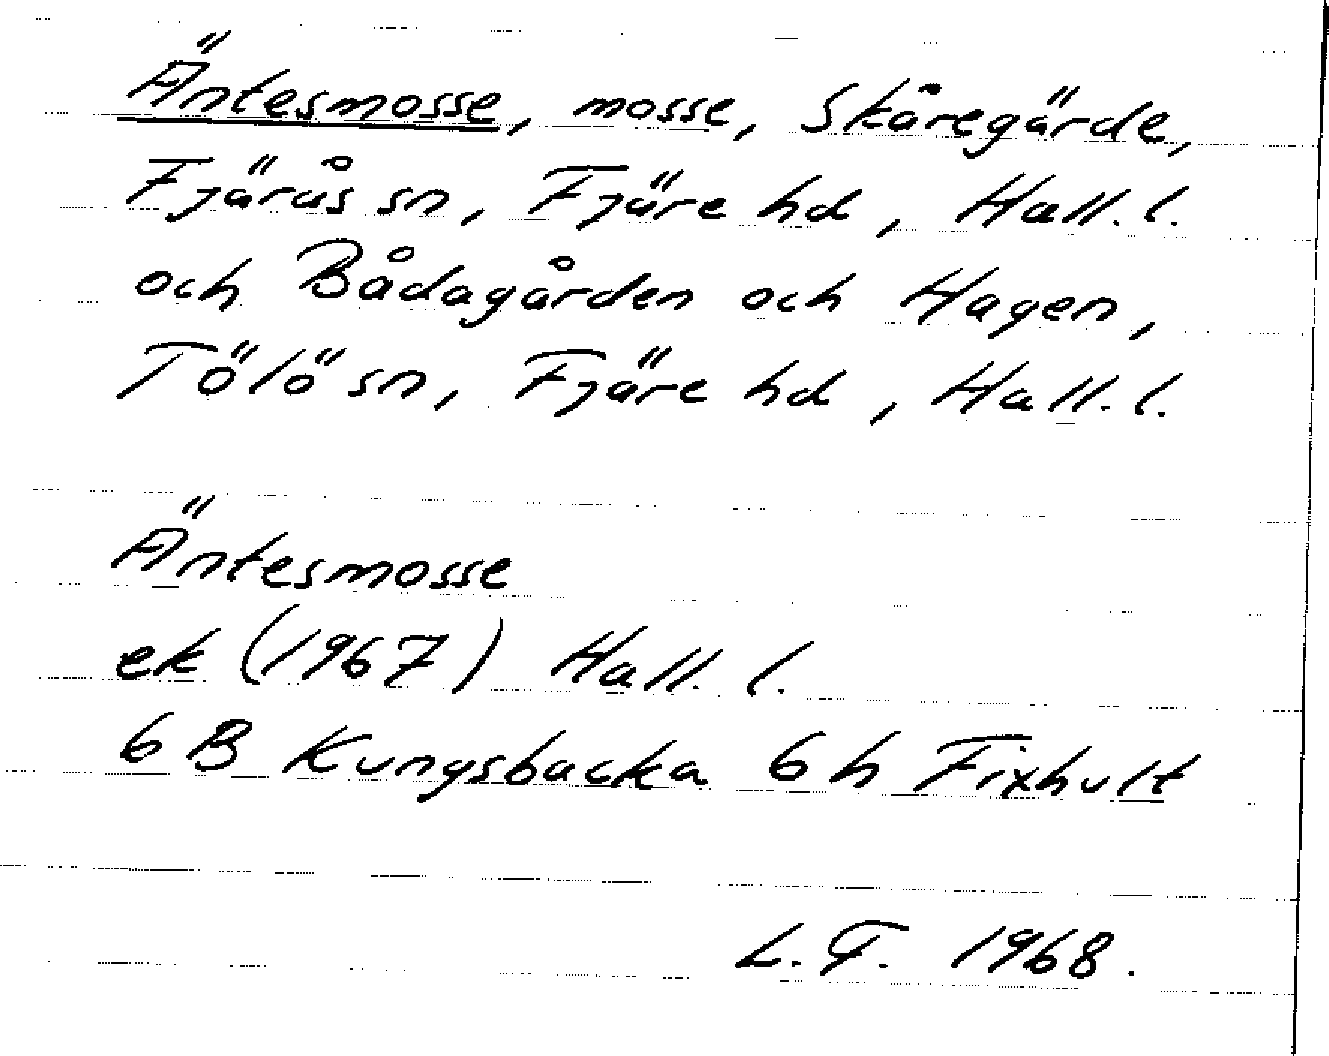 Äntesmosse, mosse, Skåregärde,
Fjärås sn, Fjäre hd, Hall. l.
och Bådagården och Hagen,
Tölö sn, Fjäre hd, Hall. l.
Äntesmosse
ek (1967) Hall. l.
6 B Kungsbacka 6 h Fixhult
L. F. 1968.